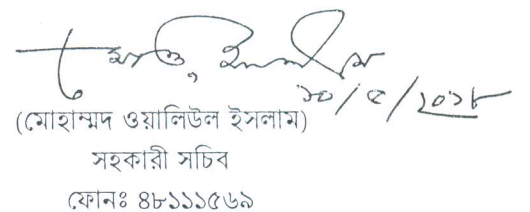 ১০/৫/২০১৮
(মোহাম্মদ ওয়ালিউল ইসলাম)
সহকারী সচিব
ফোনঃ ৪৮১১১৫৬৯